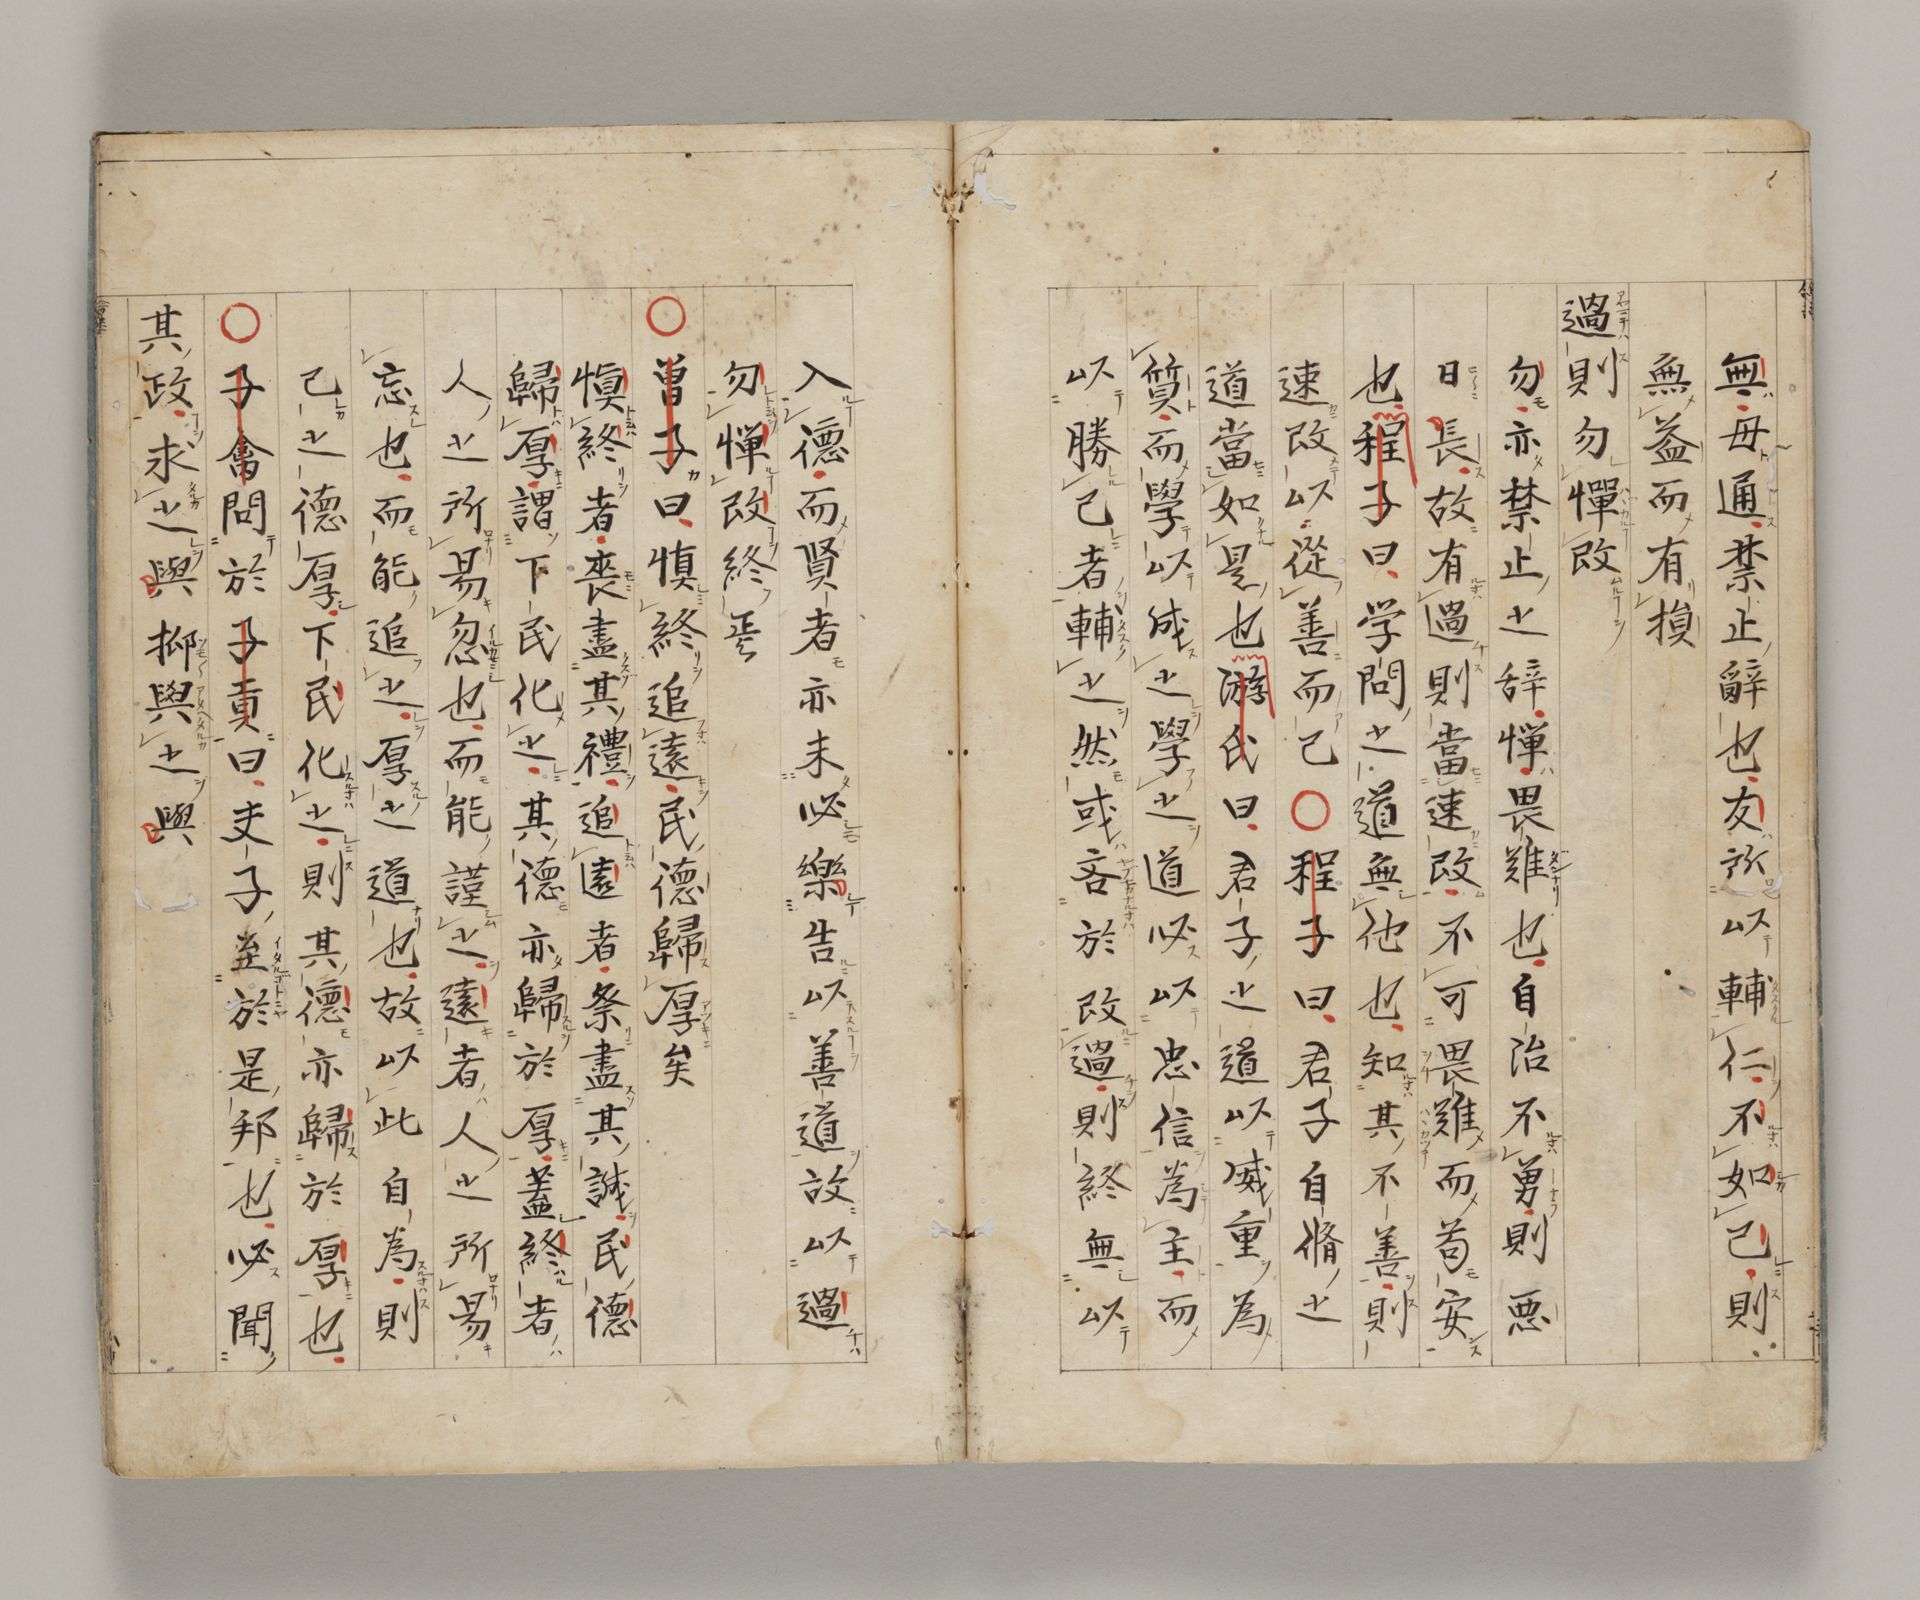 無毋通禁止辭也友所以輔仁不如己則
無益而有損
過則勿憚改
勿亦禁止之辞憚畏難也自治不勇則悪
日長故有過則當速改不可畏難而苟安
也程子曰学問之道無他也知其不善則
速改以從善而已〇程子曰君子自脩之
道當如是也游氏曰君子之道以威重為
質而學以成之學之道必以忠信為主而
以勝己者輔之然或吝於改過則終無以
入德而賢者亦未必樂告以善道故以過
勿憚改終焉
〇曽子曰慎終追遠民德歸厚矣
慎終者喪盡其禮追遠者祭盡其誠民德
歸厚謂下民化之其德亦歸於厚蓋終者
人之所易忽也而能謹之遠者人之所易
忘也而能追之厚之道也故以此自為則
己之德厚下民化之則其德亦歸於厚也
〇子禽問於子貢曰夫子至於是邦也必聞
其政求之與抑與之與